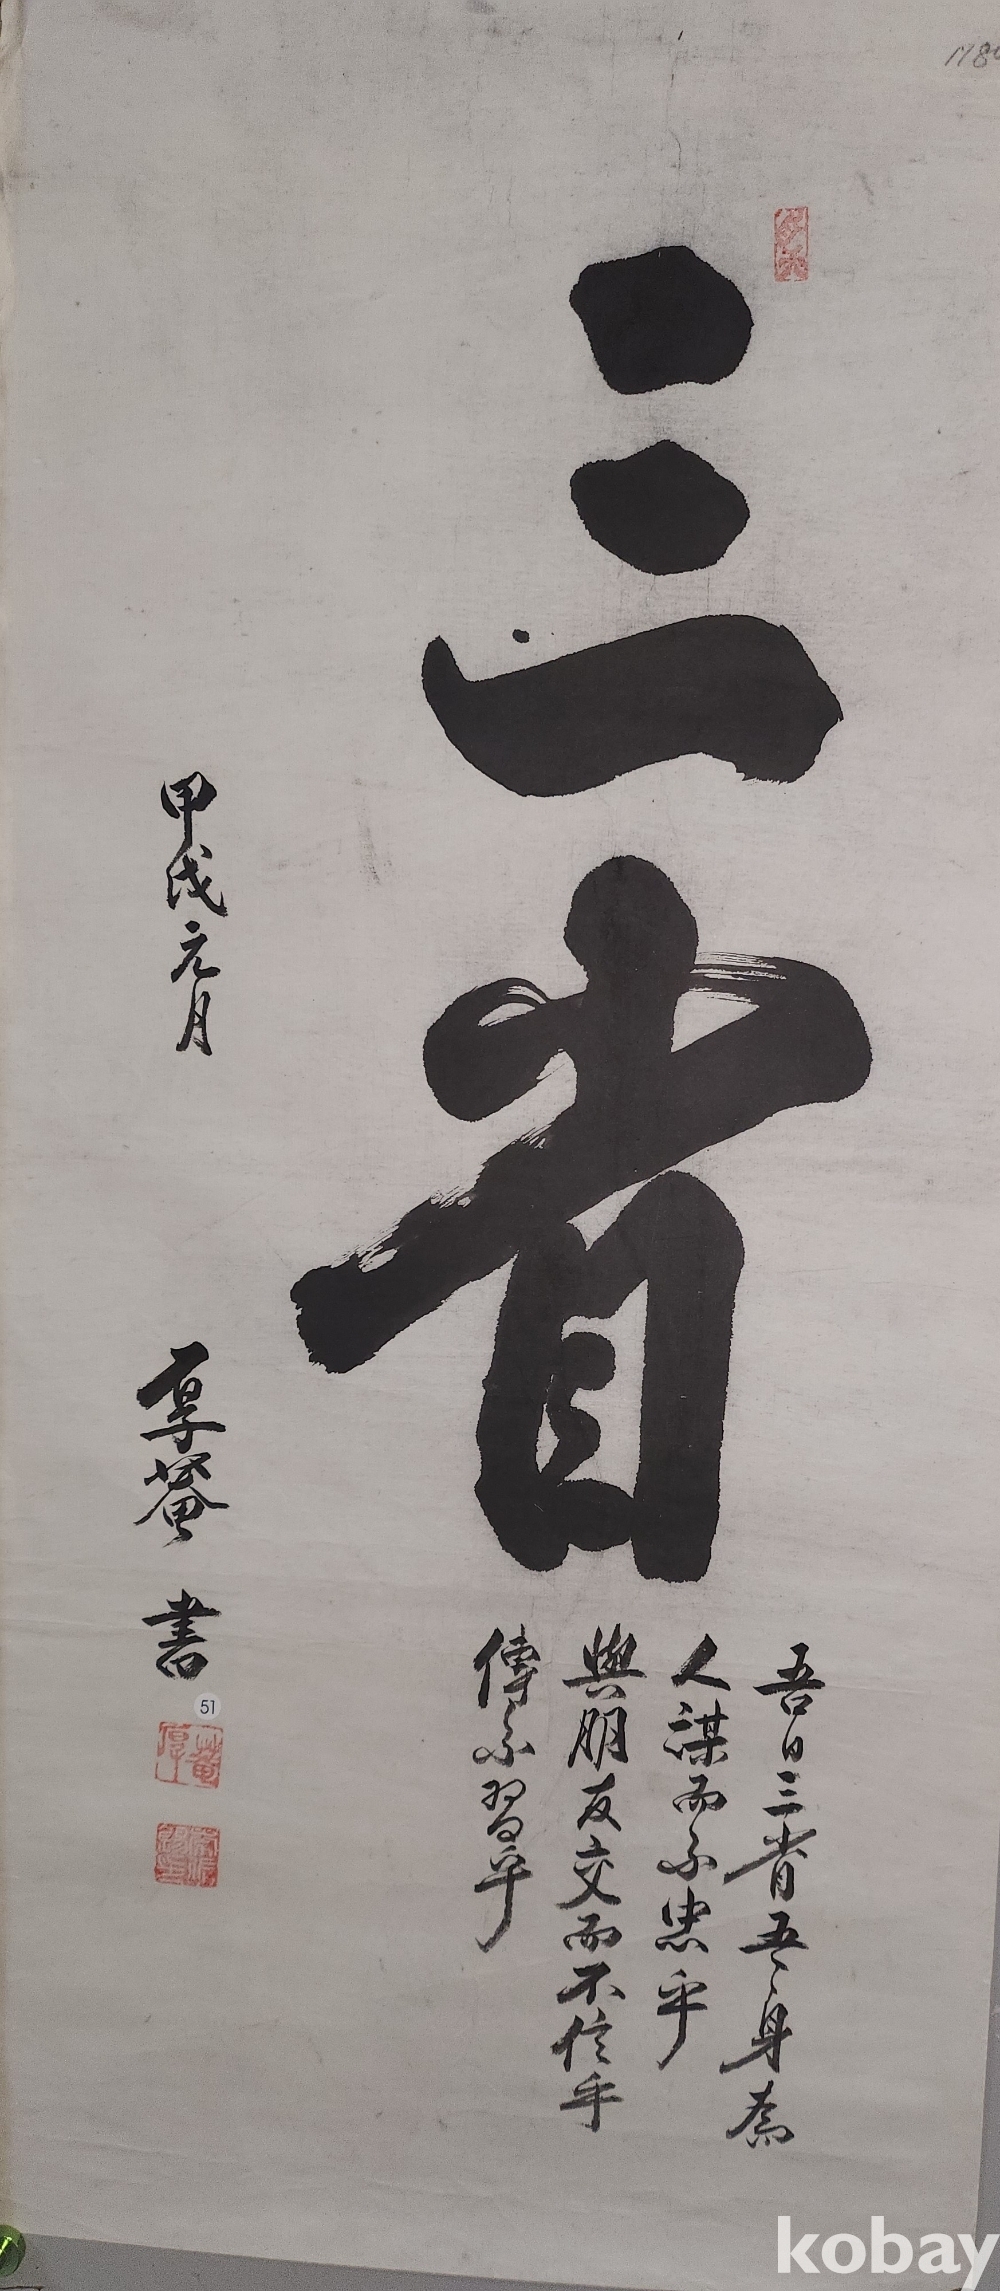 三省
吾日三省吾身為
人謀而不忠乎
與朋友交而不信乎
傳不習乎
甲戌元月
厚菴 書
51
厚菴
kobay